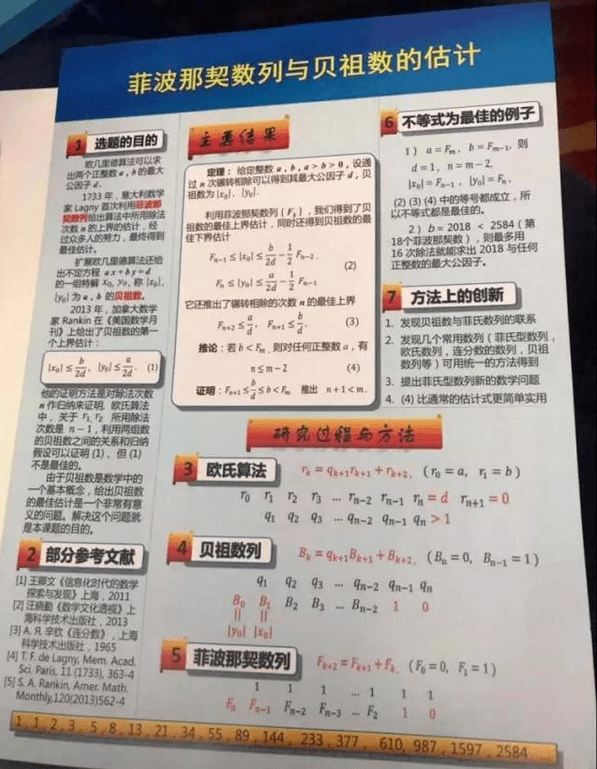 菲波那契数列与贝祖数的估计
1 选题的目的
欧几里德算法可以求
出两个正整数 a, b 的最大
公因子 d.
1733 年，意大利数学
家 Lagny 首次利用菲波那
契数列给出算法中所用除法
次数 n 的上界的估计，经
过众多人的努力，最终得到
最佳估计。
扩展欧几里德算法还给
出不定方程 ax + by = d
的一组特解 x₀, y₀, 称 |x₀|,
|y₀| 为 a, b 的贝祖数。
2013 年，加拿大数学
家 Rankin 在《美国数学月
刊》上给出了贝祖数的第一
个上界估计：
|x₀| ≤ b/2d, |y₀| ≤ a/2d. (1)
他的证明方法是对除法次数
n 作归纳来证明. 欧氏算法
中，关于 r₁, r₂ 所用除法
次数是 n − 1，利用两组数
的贝祖数之间的关系和归纳
假设可以证明 (1)、但 (1)
不是最佳的。
由于贝祖数是数学中的
一个基本概念，给出贝祖数
的最佳估计是一个非常有意
义的问题。解决这个问题就
是本课题的目的。
2 部分参考文献
[1] 王卿文《信息化时代的数学
探索与发现》上海，2011
[2] 汪晓勤《数学文化透视》上
海科学技术出版社，2013
[3] А. Я. 辛钦《连分数》，上海
科学技术出版社，1965
[4] T. F. de Lagny, Mem. Acad.
Sci. Paris, 11 (1733), 363-4
[5] S. A. Rankin, Amer. Math.
Monthly,120(2013)562-4
主要结果
定理： 给定整数 a, b, a > b > 0, 设通
过 n 次辗转相除可以得到其最大公因子 d, 贝
祖数为 |x₀|, |y₀|.
利用菲波那契数列 {Fₖ}，我们得到了贝
祖数的最佳上界估计，同时还得到贝祖数的最
佳下界估计
Fₙ₋₁ ≤ |x₀| ≤ b/2d − 1/2 Fₙ₋₂.
(2)
Fₙ ≤ |y₀| ≤ a/2d − 1/2 Fₙ₋₁
它还推出了辗转相除的次数 n 的最佳上界
Fₙ₊₂ ≤ a/d, Fₙ₊₁ ≤ b/d. (3)
推论：若 b < Fₘ, 则对任何正整数 a，有
n ≤ m − 2 (4)
证明：Fₙ₊₁ ≤ b/d ≤ b < Fₘ 推出 n + 1 < m.
6 不等式为最佳的例子
1） a = Fₘ, b = Fₘ₋₁, 则
d = 1, n = m − 2,
|x₀| = Fₙ₋₁, |y₀| = Fₙ,
(2) (3) (4) 中的等号都成立，所
以不等式都是最佳的。
2）b = 2018 < 2584（第
18个菲波那契数），则最多用
16 次除法就能求出 2018 与任何
正整数的最大公因子。
7 方法上的创新
1. 发现贝祖数与菲氏数列的联系
2. 发现几个常用数列（菲氏型数列，
欧氏数列，连分数的数列，贝祖
数列等）可用统一的方法得到
3. 提出菲氏型数列新的数学问题
4. (4) 比通常的估计式更简单实用
研究过程与方法
3 欧氏算法 rₖ = qₖ₊₁rₖ₊₁ + rₖ₊₂,（r₀ = a, r₁ = b）
r₀ r₁ r₂ r₃ ... rₙ₋₂ rₙ₋₁ rₙ = d rₙ₊₁ = 0
q₁ q₂ q₃ ... qₙ₋₂ qₙ₋₁ qₙ > 1
4 贝祖数列 Bₖ = qₖ₊₁Bₖ₊₁ + Bₖ₊₂,（Bₙ = 0, Bₙ₋₁ = 1）
q₁ q₂ q₃ ... qₙ₋₂ qₙ₋₁ qₙ
B₀ B₁ B₂ B₃ ... Bₙ₋₂ 1 0
|| ||
|y₀| |x₀|
5 菲波那契数列 Fₖ₊₂ = Fₖ₊₁ + Fₖ,（F₀ = 0, F₁ = 1）
1 1 1 ... 1 1 1
Fₙ Fₙ₋₁ Fₙ₋₂ Fₙ₋₃ ... F₂ 1 0
1, 1, 2, 3, 5, 8, 13, 21, 34, 55, 89, 144, 233, 377, 610, 987, 1597, 2584 ...